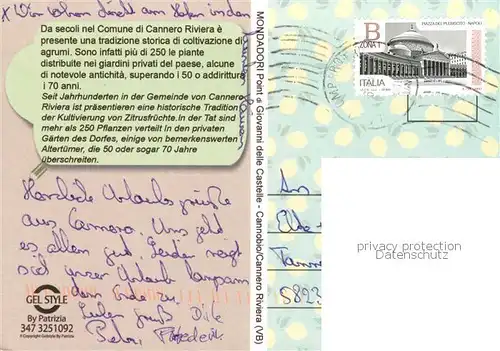 x Wir wohnen direkt am Hafen in den
Da secoli nel Comune di Cannero Riviera è
presente una tradizione storica di coltivazione di
agrumi. Sono infatti più di 250 le piante
distribuite nei giardini privati del paese, alcune
di notevole antichità, superando i 50 o addirittura
i 70 anni.
Seit Jahrhunderten in der Gemeinde von Cannero
Riviera ist präsentieren eine historische Tradition
der Kultivierung von Zitrusfrüchte.In der Tat sind
mehr als 250 Pflanzen verteilt In den privaten
Gärten des Dorfes, einige von bemerkenswerten
Altertümer, die 50 oder sogar 70 Jahre
überschreiten.
Herzliche Urlaubsgrüße
aus Cannero. Uns geht
es allen gut. Leider neigt
sich unser Urlaub langsam
dem Ende zu.
Lieben Gruß Dirk
Petra, Frederik
GEL STYLE
By Patrizia
347 3251092
MONDADORI Point di Giovanni delle Castelle - Cannobio/Cannero Riviera (VB)
B
ZONA 1
PIAZZA DEL PLEBISCITO NAPOLI
ITALIA
An
privacy protection
Datenschutz